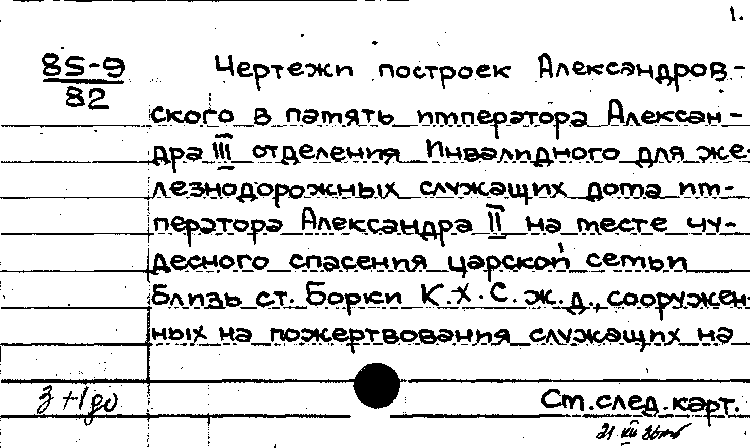 1.
85-9
82
Чертежи построек Александров-
ского в память императора Алексан-
дра III отделения Инвалидного для же-
лезнодорожных служащих дома им-
ператора Александра II на месте чу-
десного спасения царской семьи
близь ст. Борки К.Х.С.ж.д., сооружен-
ных на пожертвования служащих на
3 + 1 до
См. след. карт.